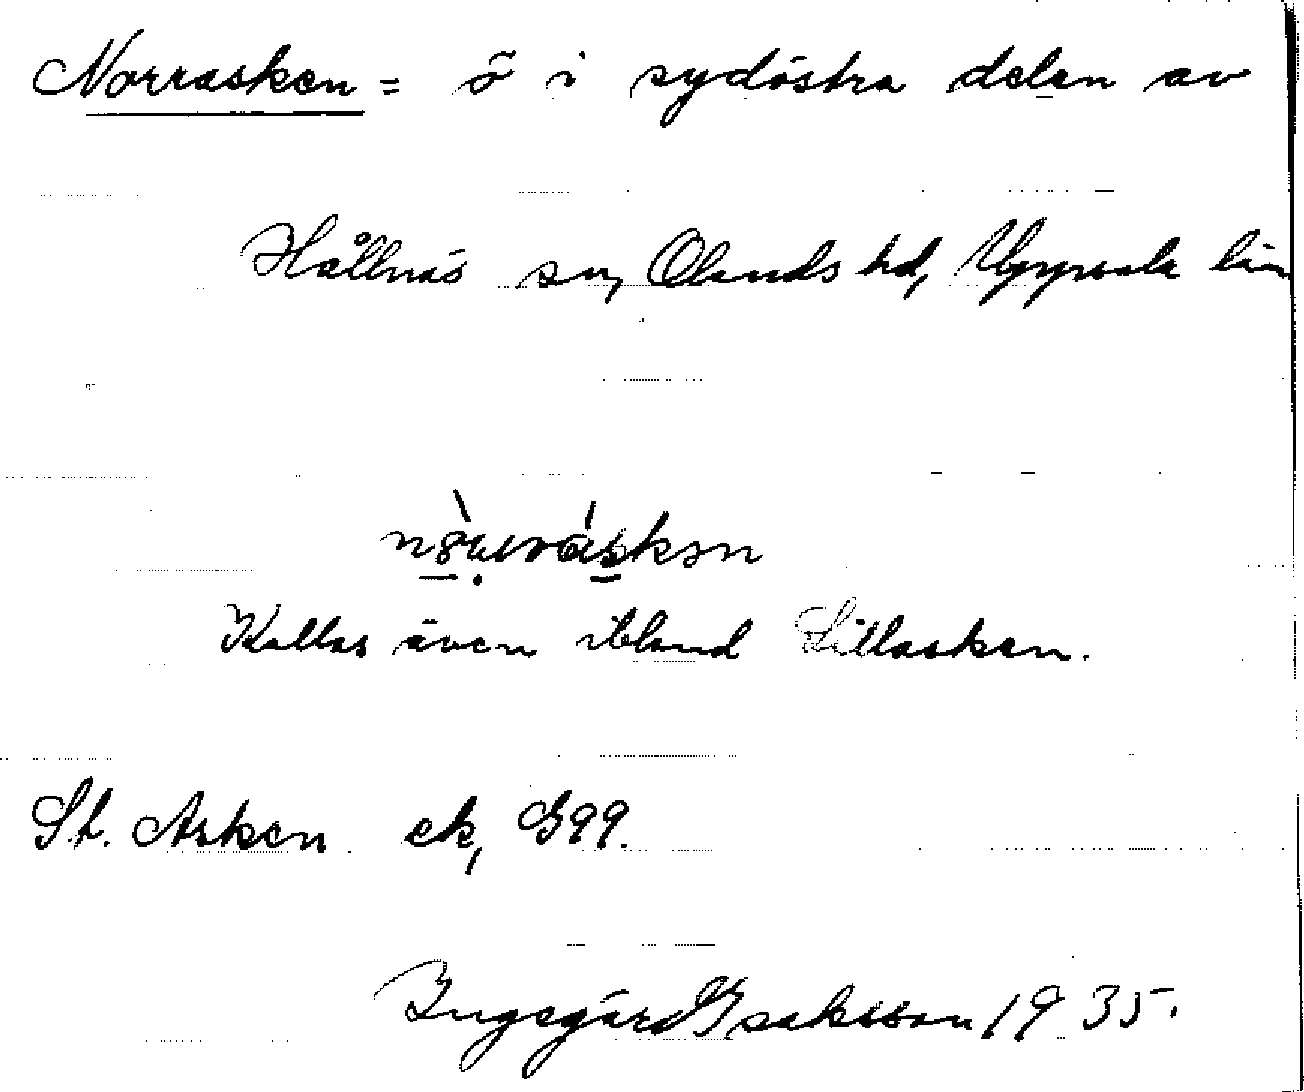 Norrasken = ö i sydöstra delen av
Hållnäs sn, Olands hd, Uppsala län
Kallas även ibland Lillasken.
St. Asken ek, G99.
Ingegärd Isaksson 1935.